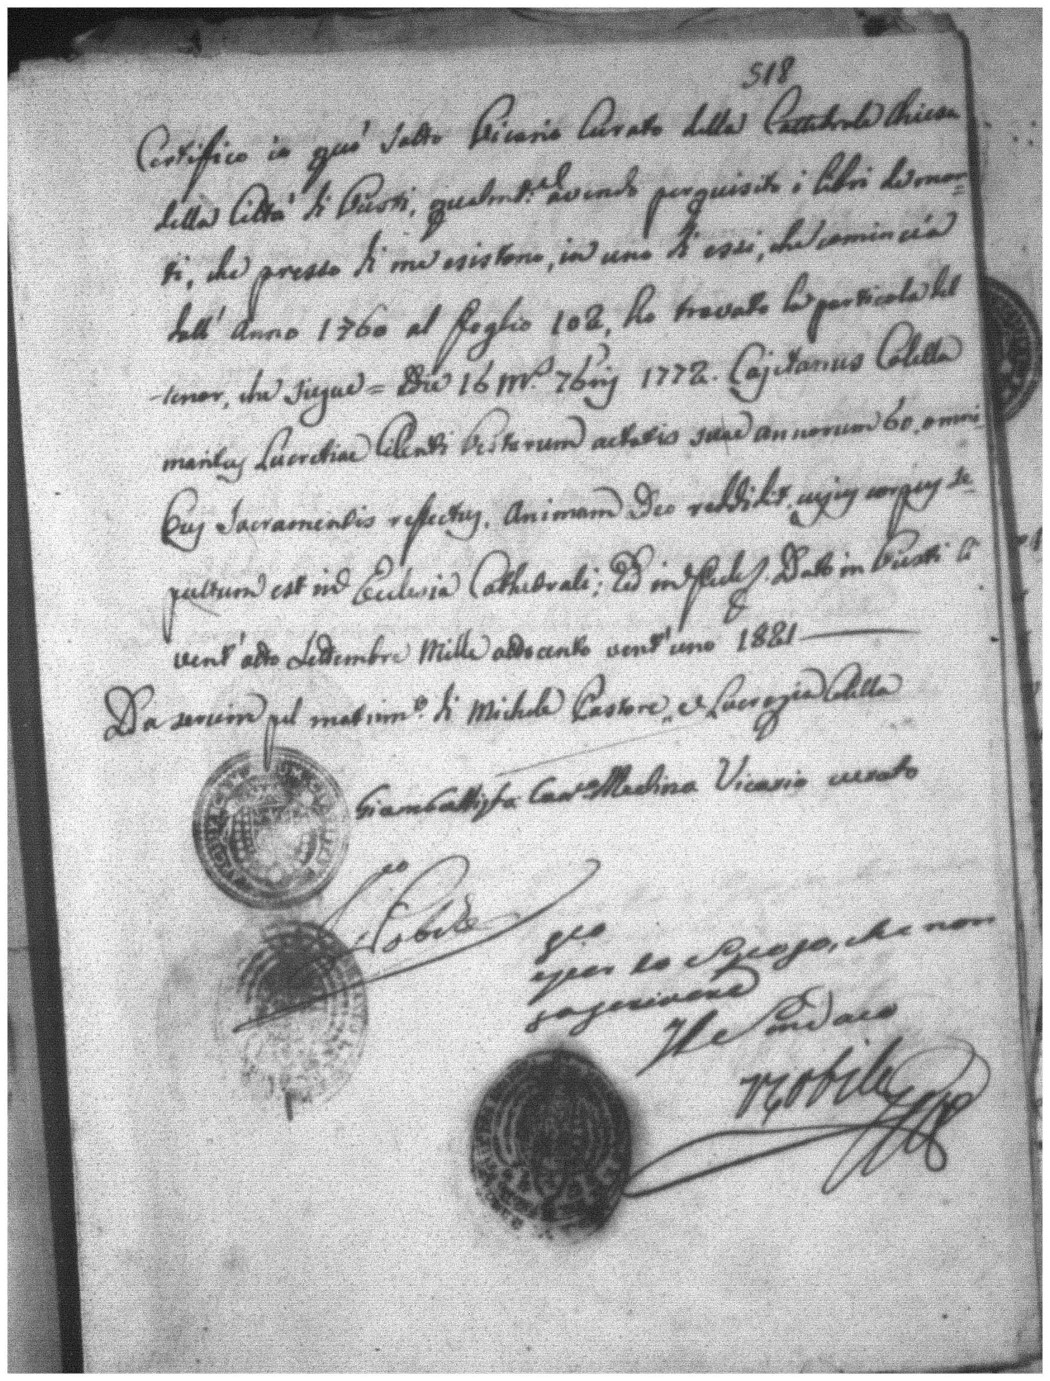 518
Certifico io quì sotto Vicario Curato della Cattedrale Chiesa
della Città di Viesti, qualmte avendo perquisito i libri de mor=
ti, che presso di me esistono, in uno di essi, che comincia
dall' Anno 1760 al foglio 102, ho trovato la particola del
tenor, che siegue = Die 16 Ms. 7bris 1772. Cajetanus Colella
maritus Lucretiae Cilenti Vestarum aetatis suae annorum 60. omni=
bus Sacramentis refectus, Animam Deo reddidit, cujus corpus se=
pultum est in Ecclesia Cathedrali; Ed in fede. Dato in Viesti li
vent'otto Settembre Mille ottocento vent'uno 1821
Da servire pel matrimo. di Michele Pastore, e Lucrezia Colella
Giambattista Medina Vicario curato
Nobile
per lo sposo, che non
sa scrivere
Il Sindaco
Nobile